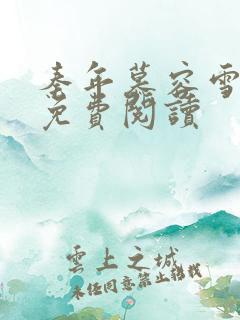 秦年慕容雪
免費閱讀
雲上之城
未經同意禁止轉載